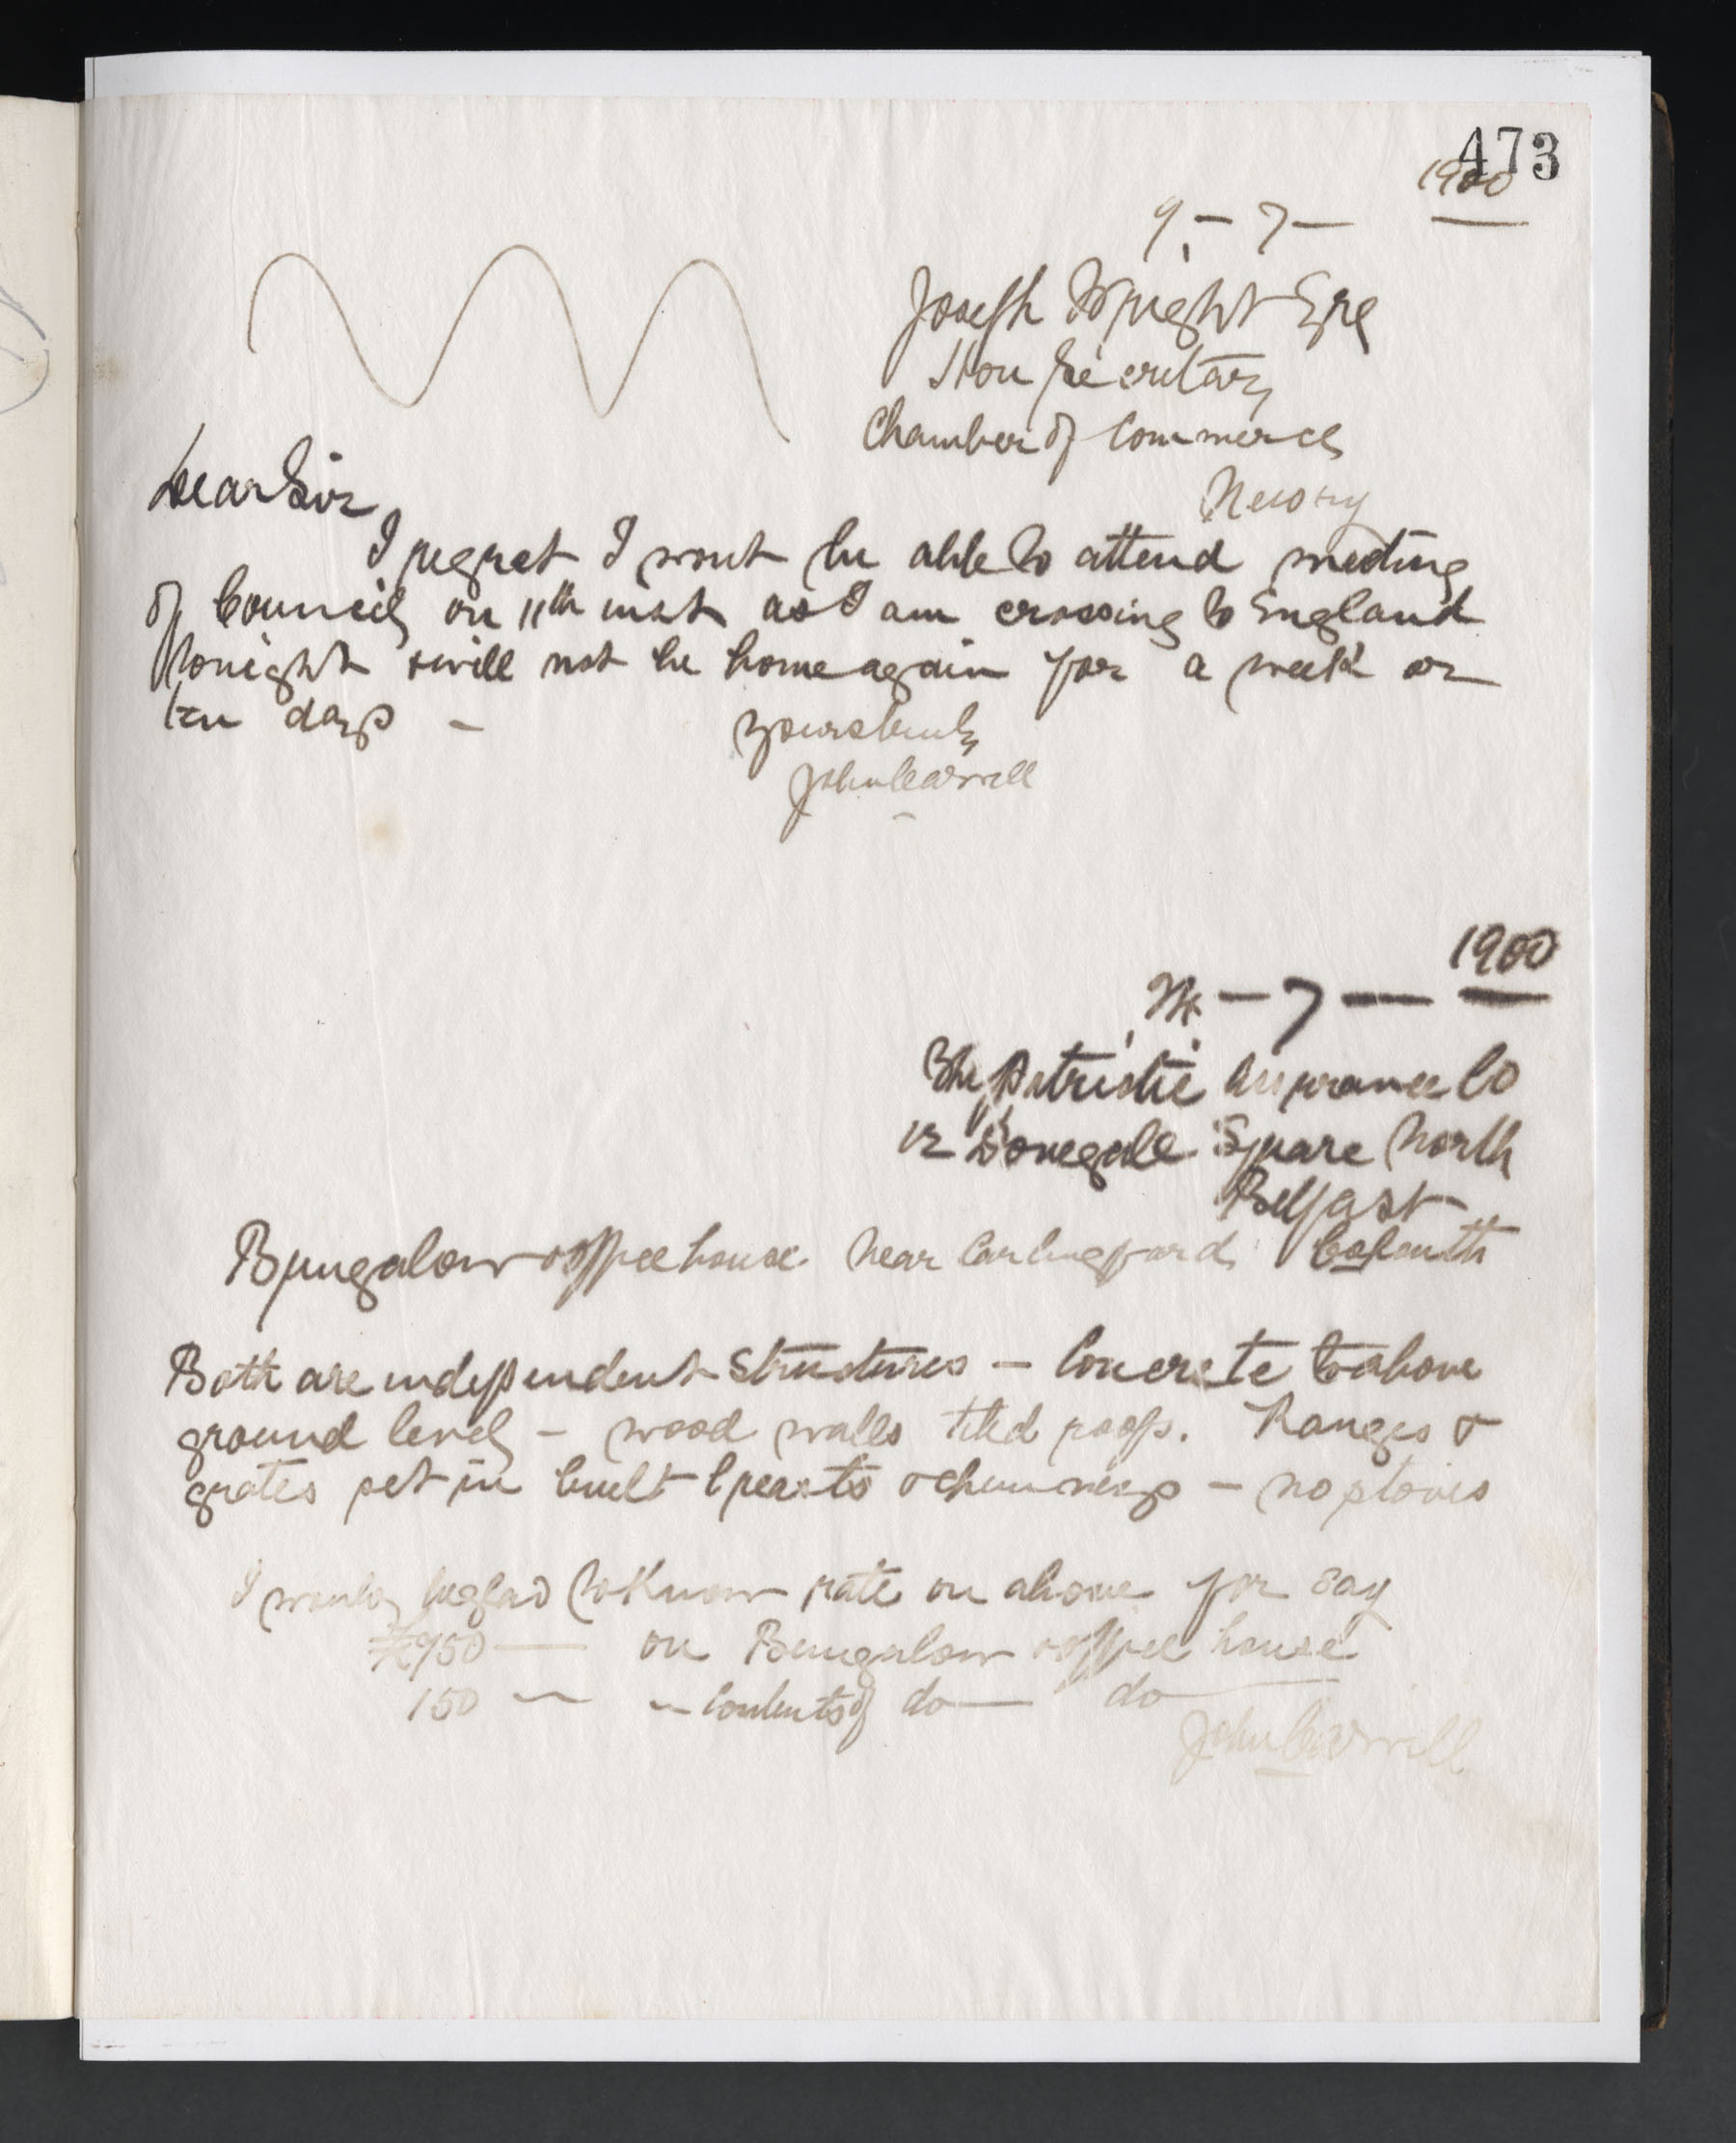 473
1900
9 - 7 -
Joseph Wright Esq
Hon Secretary
Chamber of Commerce
Newry
Dear Sir,
I regret I wont be able to attend meeting
of Council on 11th inst as I am crossing to England
tonight & will not be home again for a week or
ten days -
Yours truly
John Carvill
1900
- 7 -
The Patriotic Assurance Co
12 Donegall Square North
Belfast
Bungalow & Office house near Carlingford Co Louth
Both are independent structures - Concrete to above
ground level - wood walls tiled roofs. Ranges &
grates set in built breasts & chimneys - no stoves
I would be glad to know rate on above for say
£950 - on Bungalow & office house
150 - - Contents of do - do
John Carvill